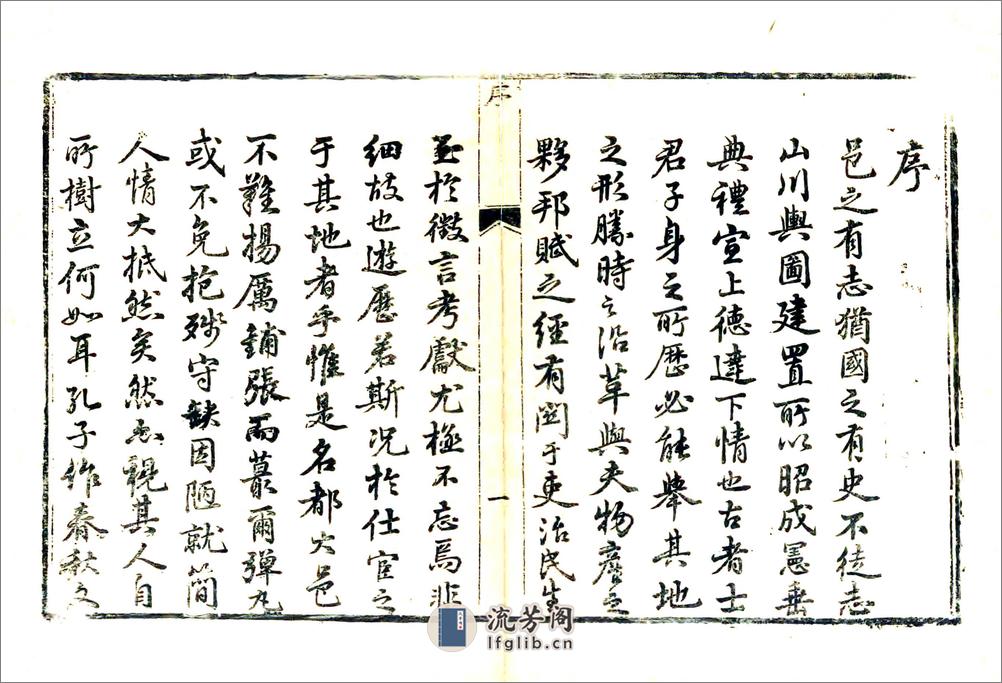 序
邑之有志猶國之有史不徒志
山川輿圖建置所以昭成憲垂
典禮宣上德達下情也古者士
君子身之所歷必能舉其地
之形勝時之沿革與夫物產之
夥邦賦之經有関于吏治民生
至於徵言考獻尤極不忘焉非
細故也遊歷若斯况於仕宦之
于其地者乎惟是名都大邑
不難揚厲鋪張而蕞爾彈丸
或不免抱殘守缺因陋就簡
人情大抵然矣然亦視其人自
所樹立何如耳孔子作春秋之
序
一
流芳阁
lfglib.cn